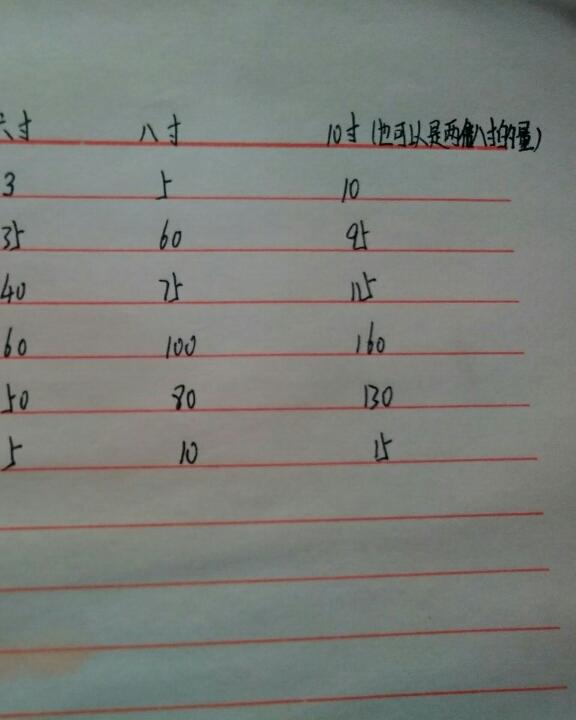 六寸 八寸 10寸(也可以是两个八寸的量)
3 5 10
35 60 95
40 75 115
60 100 160
50 80 130
5 10 15